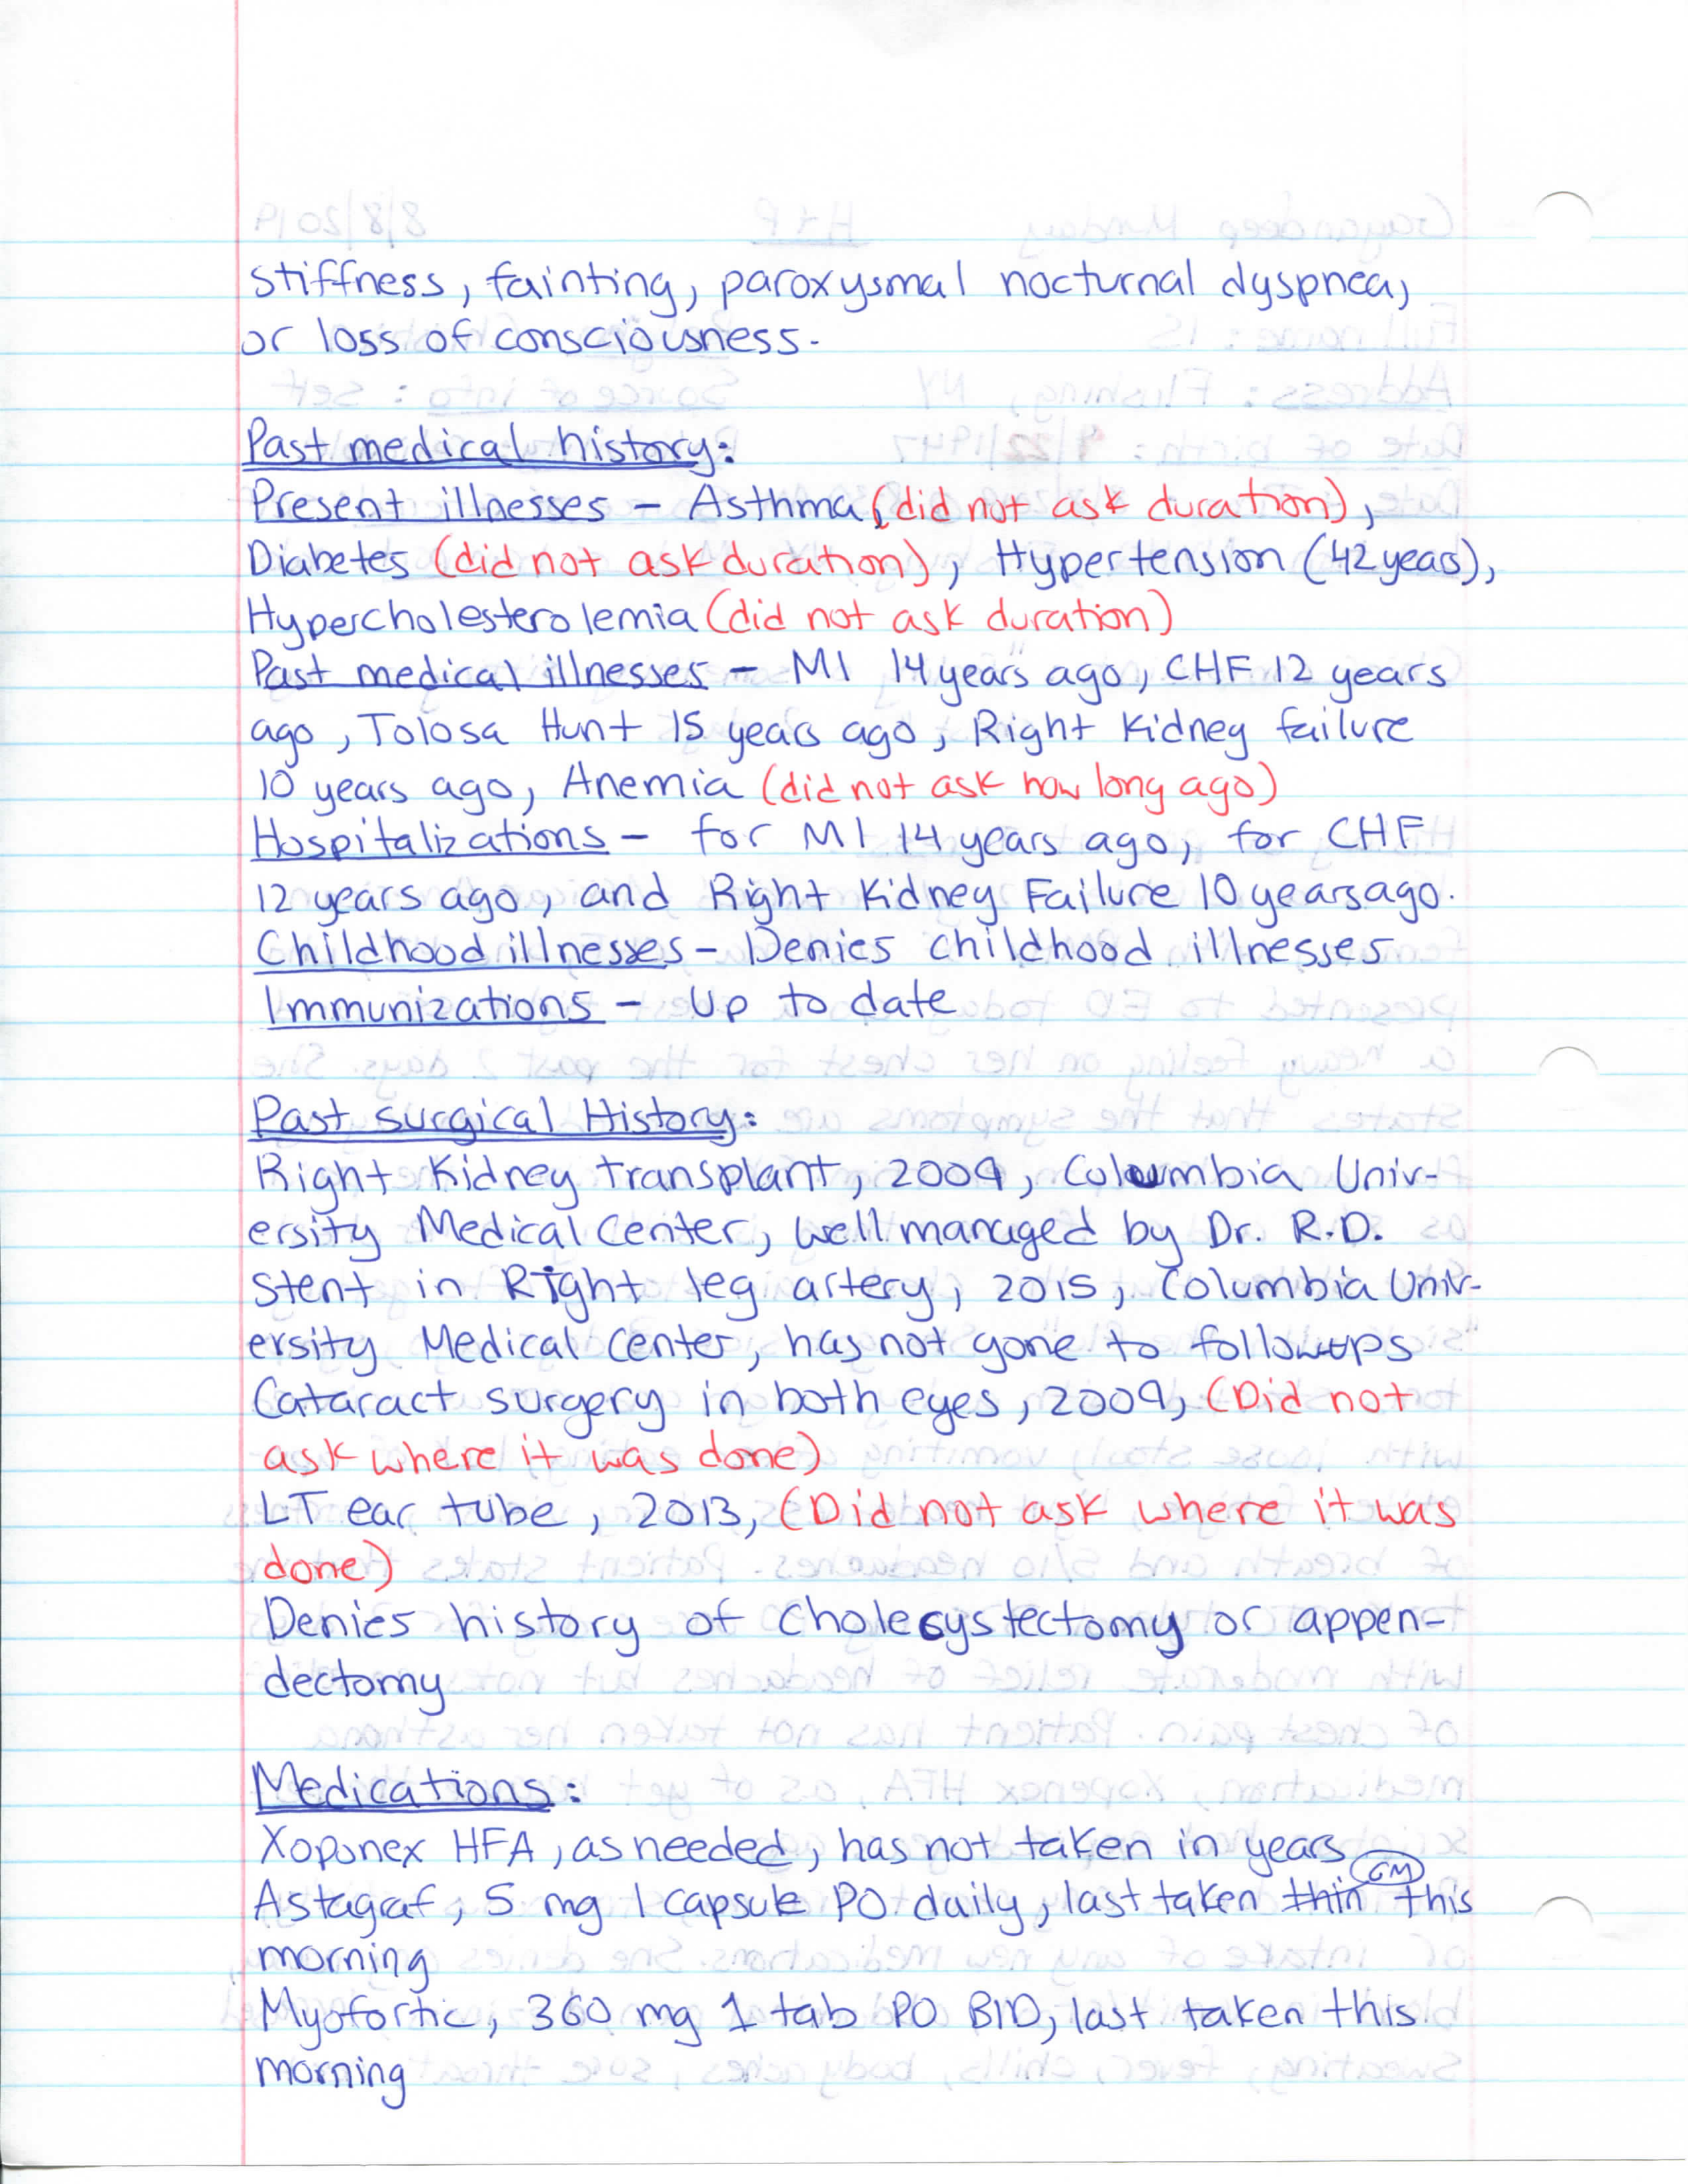 stiffness, fainting, paroxysmal nocturnal dyspnea,
or loss of consciousness.
Past medical history:
Present illnesses - Asthma (did not ask duration),
Diabetes (did not ask duration), Hypertension (42 years),
Hypercholesterolemia (did not ask duration)
Past medical illnesses - MI 14 years ago, CHF 12 years
ago, Tolosa Hunt 15 years ago, Right Kidney failure
10 years ago, Anemia (did not ask how long ago)
Hospitalizations - for MI 14 years ago, for CHF
12 years ago, and Right Kidney Failure 10 years ago.
Childhood illnesses - Denies childhood illnesses
Immunizations - Up to date
Past surgical History:
Right Kidney transplant, 2009, Columbia Univ-
ersity Medical Center, well managed by Dr. R.D.
Stent in Right leg artery, 2015, Columbia Univ-
ersity Medical Center, has not gone to followups
Cataract surgery in both eyes, 2009, (Did not
ask where it was done)
LT ear tube, 2013, (Did not ask where it was
done)
Denies history of cholecystectomy or appen-
dectomy
Medications:
Xoponex HFA, as needed, has not taken in years
Astagraf, 5 mg 1 capsule PO daily, last taken thin GM this
morning
Myofortic, 360 mg 1 tab PO BID, last taken this
morning